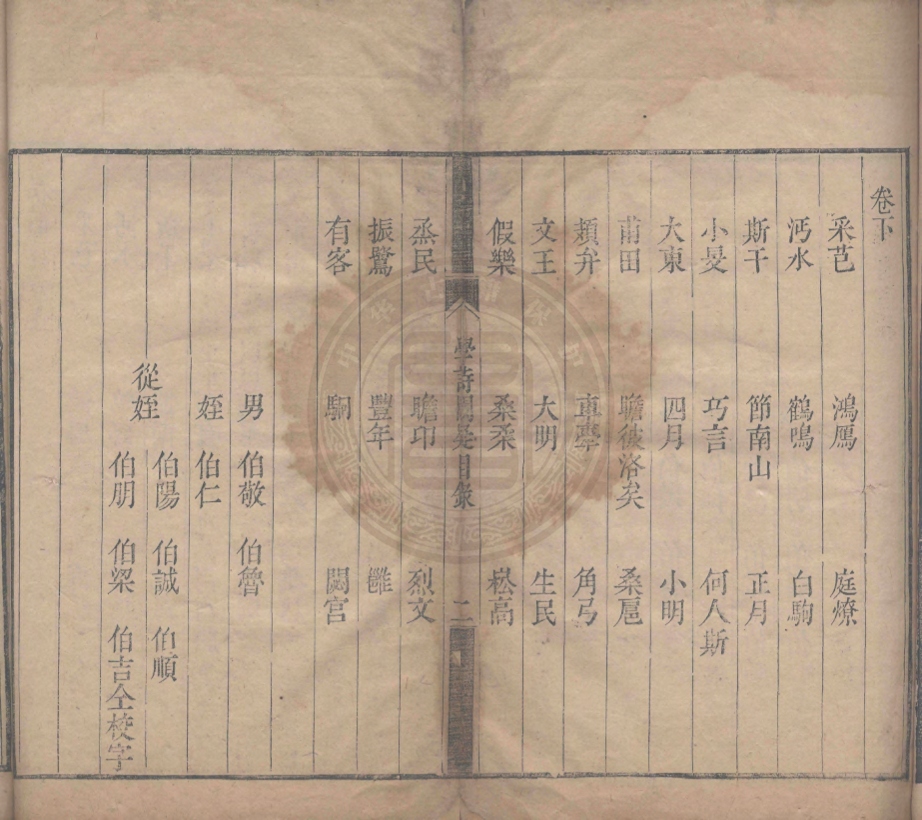 卷下
采芑 鴻鴈 庭燎
沔水 鶴鳴 白駒
斯干 節南山 正月
小旻 巧言 何人斯
大東 四月 小明
甫田 瞻彼洛矣 桑扈
頍弁 車舝 角弓
文王 大明 生民
假樂 桑柔 崧高
學詩闕疑目錄 二
烝民 瞻卬 烈文
振鷺 豐年 雝
有客 駉 閟宮
男 伯敬 伯魯
姪 伯仁
從姪 伯陽 伯誠 伯順
伯朋 伯梁 伯吉仝校字